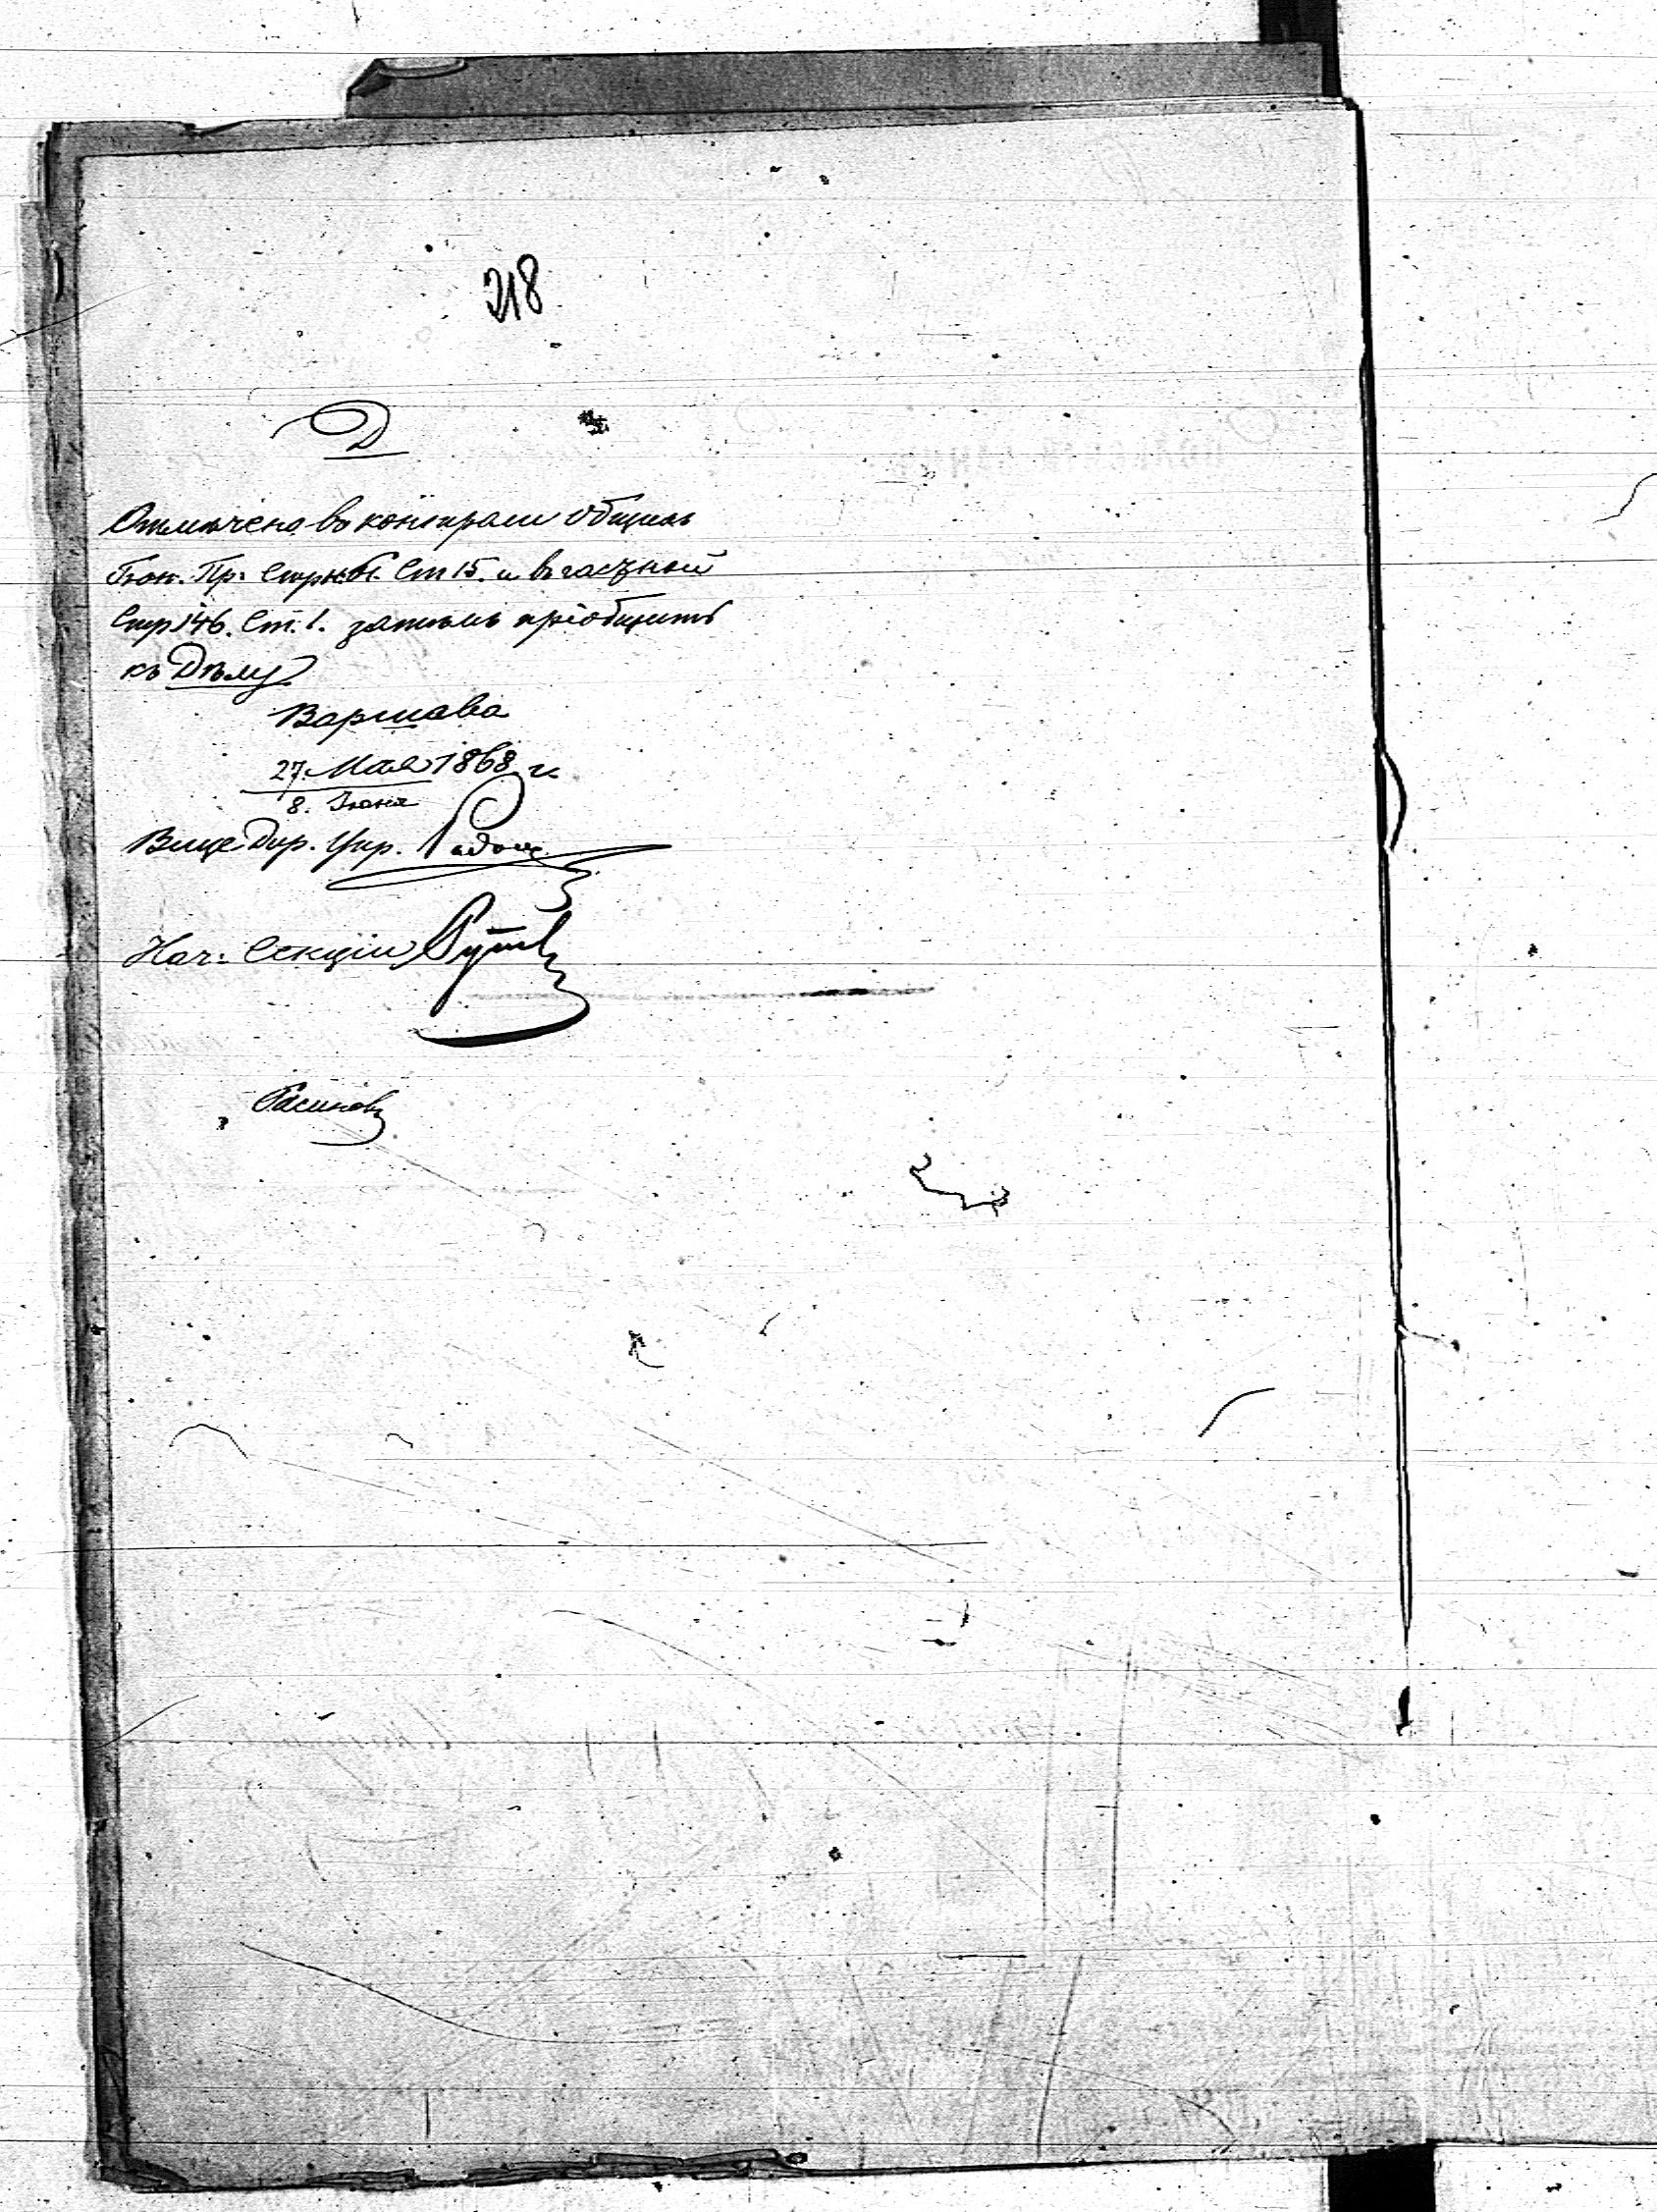 218
Д
Отмѣчено въ контроли общихъ
Пр. Ст 15. и въ частной
Стр 146. Ст. 1. затѣмъ пріобщить
къ Дѣлу
Варшава
27. Мая 1868 г.
8. Іюня
Вице Дир. Упр.
Нач: Секціи